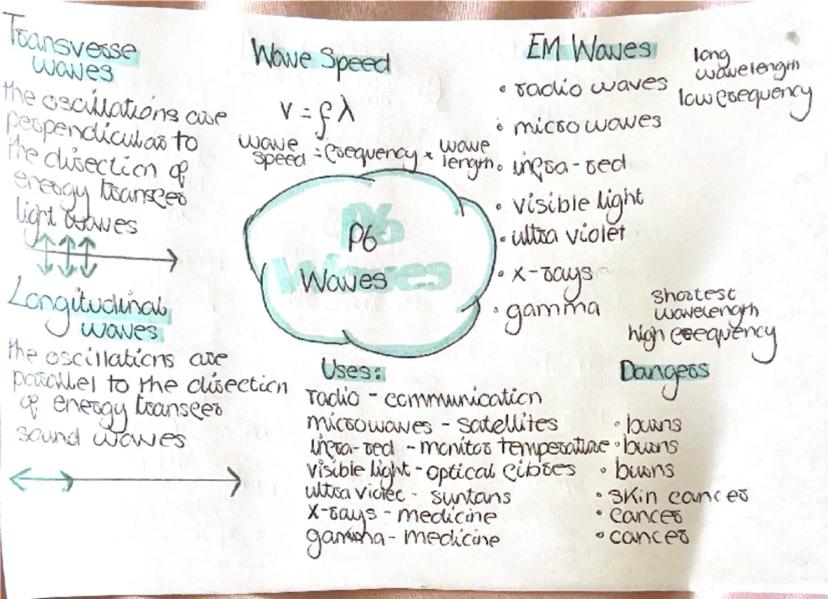 Transverse
waves
the oscillations are
perpendicular to
the direction of
energy transfer
light waves
Longitudinal
waves
the oscillations are
parallel to the direction
of energy transfer
sound waves
Wave Speed
v = f λ
wave speed = frequency × wave length
P6
Waves
EM Waves
• radio waves
long
wavelength
low frequency
• micro waves
• infra-red
• visible light
• ultra violet
• x-rays
• gamma
shortest
wavelength
high frequency
Uses:
radio - communication
microwaves - satellites
infra-red - monitor temperature
visible light - optical fibres
ultra violet - suntans
x-rays - medicine
gamma - medicine
Dangers
• burns
• burns
• burns
• skin cancer
• cancer
• cancer